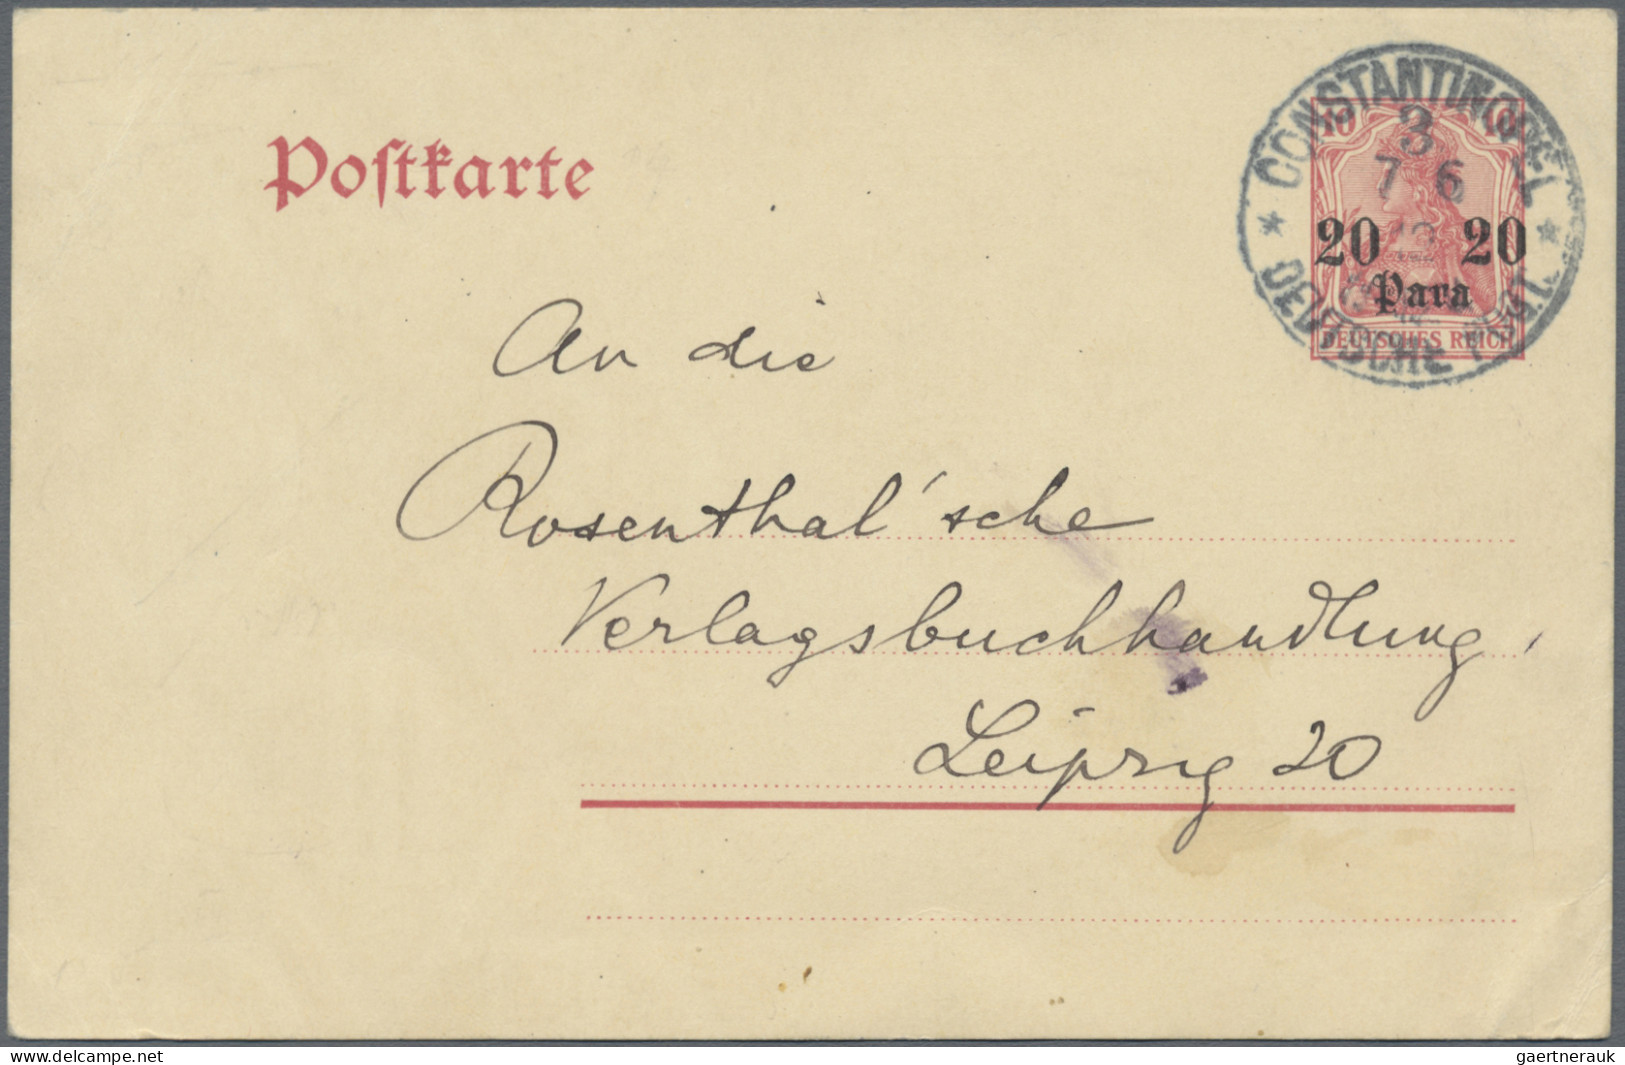 CONSTANTINOPEL
3
7 6
13
* DEUTSCHE POST. *
10 10
20 20
Para
DEUTSCHES REICH
Postkarte
An die
Rosenthal'sche
Verlagsbuchhandlung,
Leipzig 20
gaertnerauk